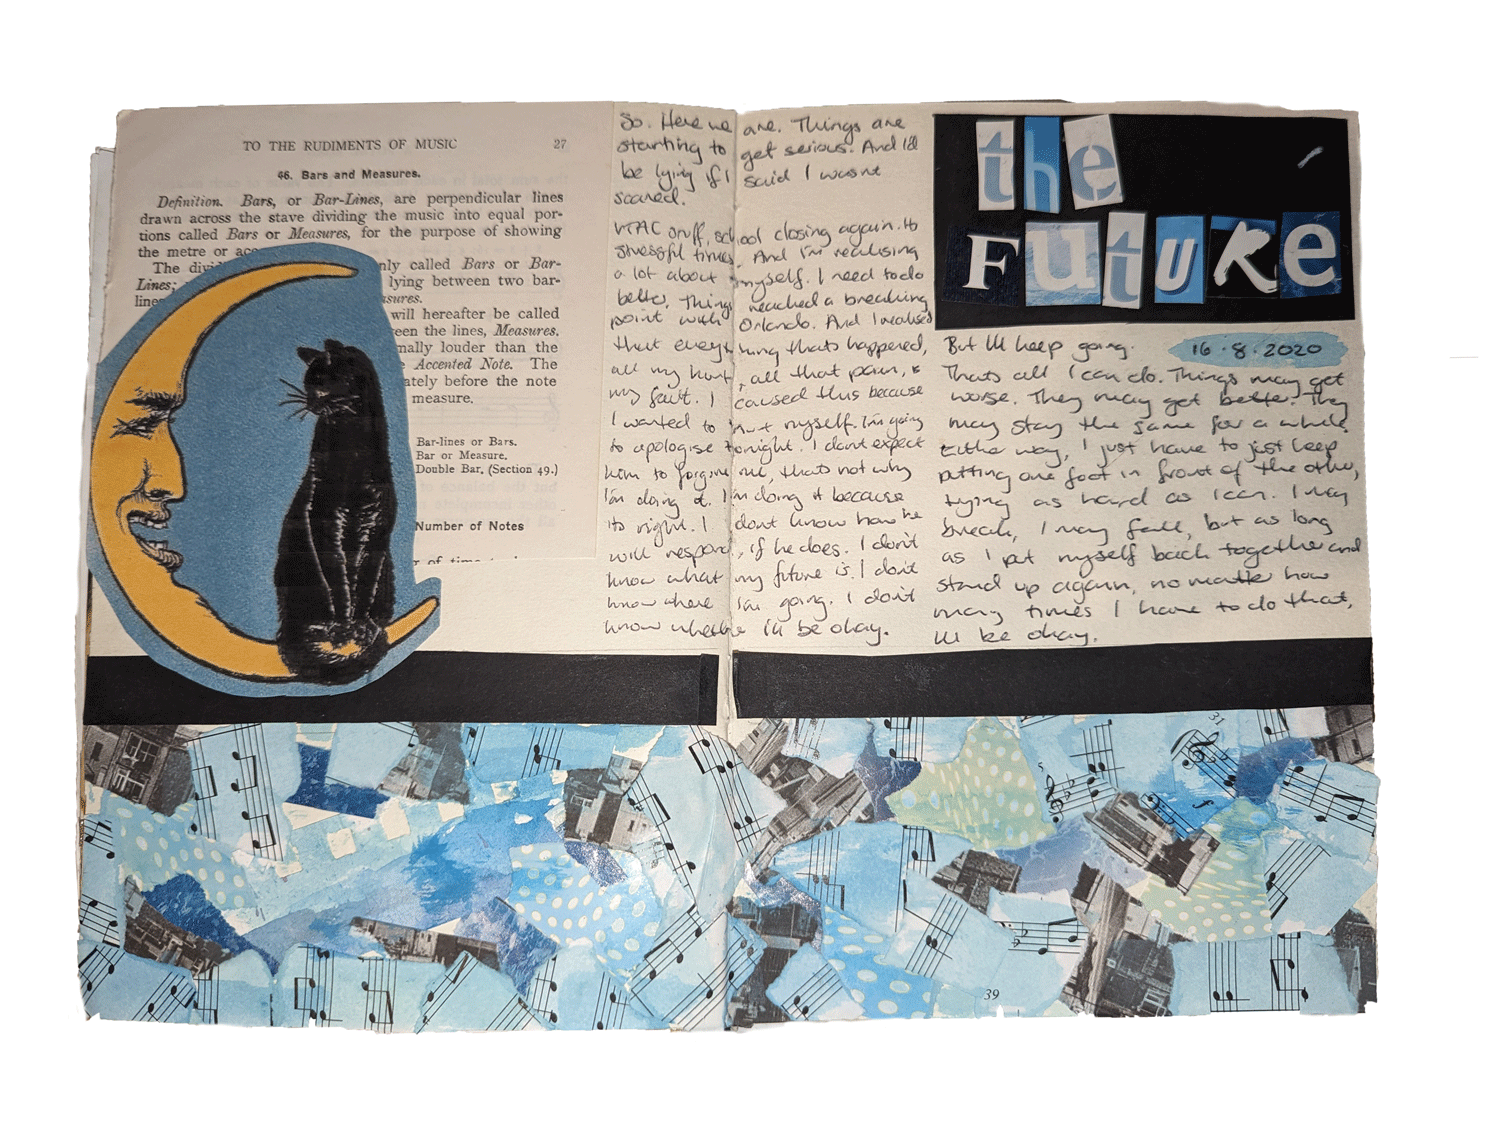 TO THE RUDIMENTS OF MUSIC 27
46. Bars and Measures.
Definition. Bars, or Bar-Lines, are perpendicular lines
drawn across the stave dividing the music into equal por-
tions called Bars or Measures, for the purpose of showing
the metre or
The only called Bars or Bar-
Lines; lying between two bar-
lines
will hereafter be called
the lines, Measures.
louder than the
Accented Note. The
before the note
measure.
Bar-lines or Bars.
Bar or Measure.
Double Bar, (Section 49.)
Number of Notes
So. Here we are. Things are
starting to get serious. And I'd
be lying if I said I wasnt
scared.
VTAC stuff, school closing again. Its
stressful times. And I'm realising
a lot about myself. I need to do
better. Things reached a breaking
point with Orlando. And I realised
that everything thats happened,
all my hurt, all that pain, is
my fault. I caused this because
I wanted to hurt myself. I'm going
to apologise tonight. I dont expect
him to forgive me, thats not why
I'm doing it. I'm doing it because
its right. I dont know how he
will respond, if he does. I don't
know what my future is. I don't
know where I'm going. I don't
know whether I'll be okay.
the
FUtURe
But I'll keep going. 16.8.2020
Thats all I can do. Things may get
worse. They may get better. They
may stay the same for a while.
Either way, I just have to just keep
putting one foot in front of the other,
trying as hard as I can. I may
break, I may fall, but as long
as I put myself back together and
stand up again, no matter how
many times I have to do that,
I'll be okay.
31
f
39